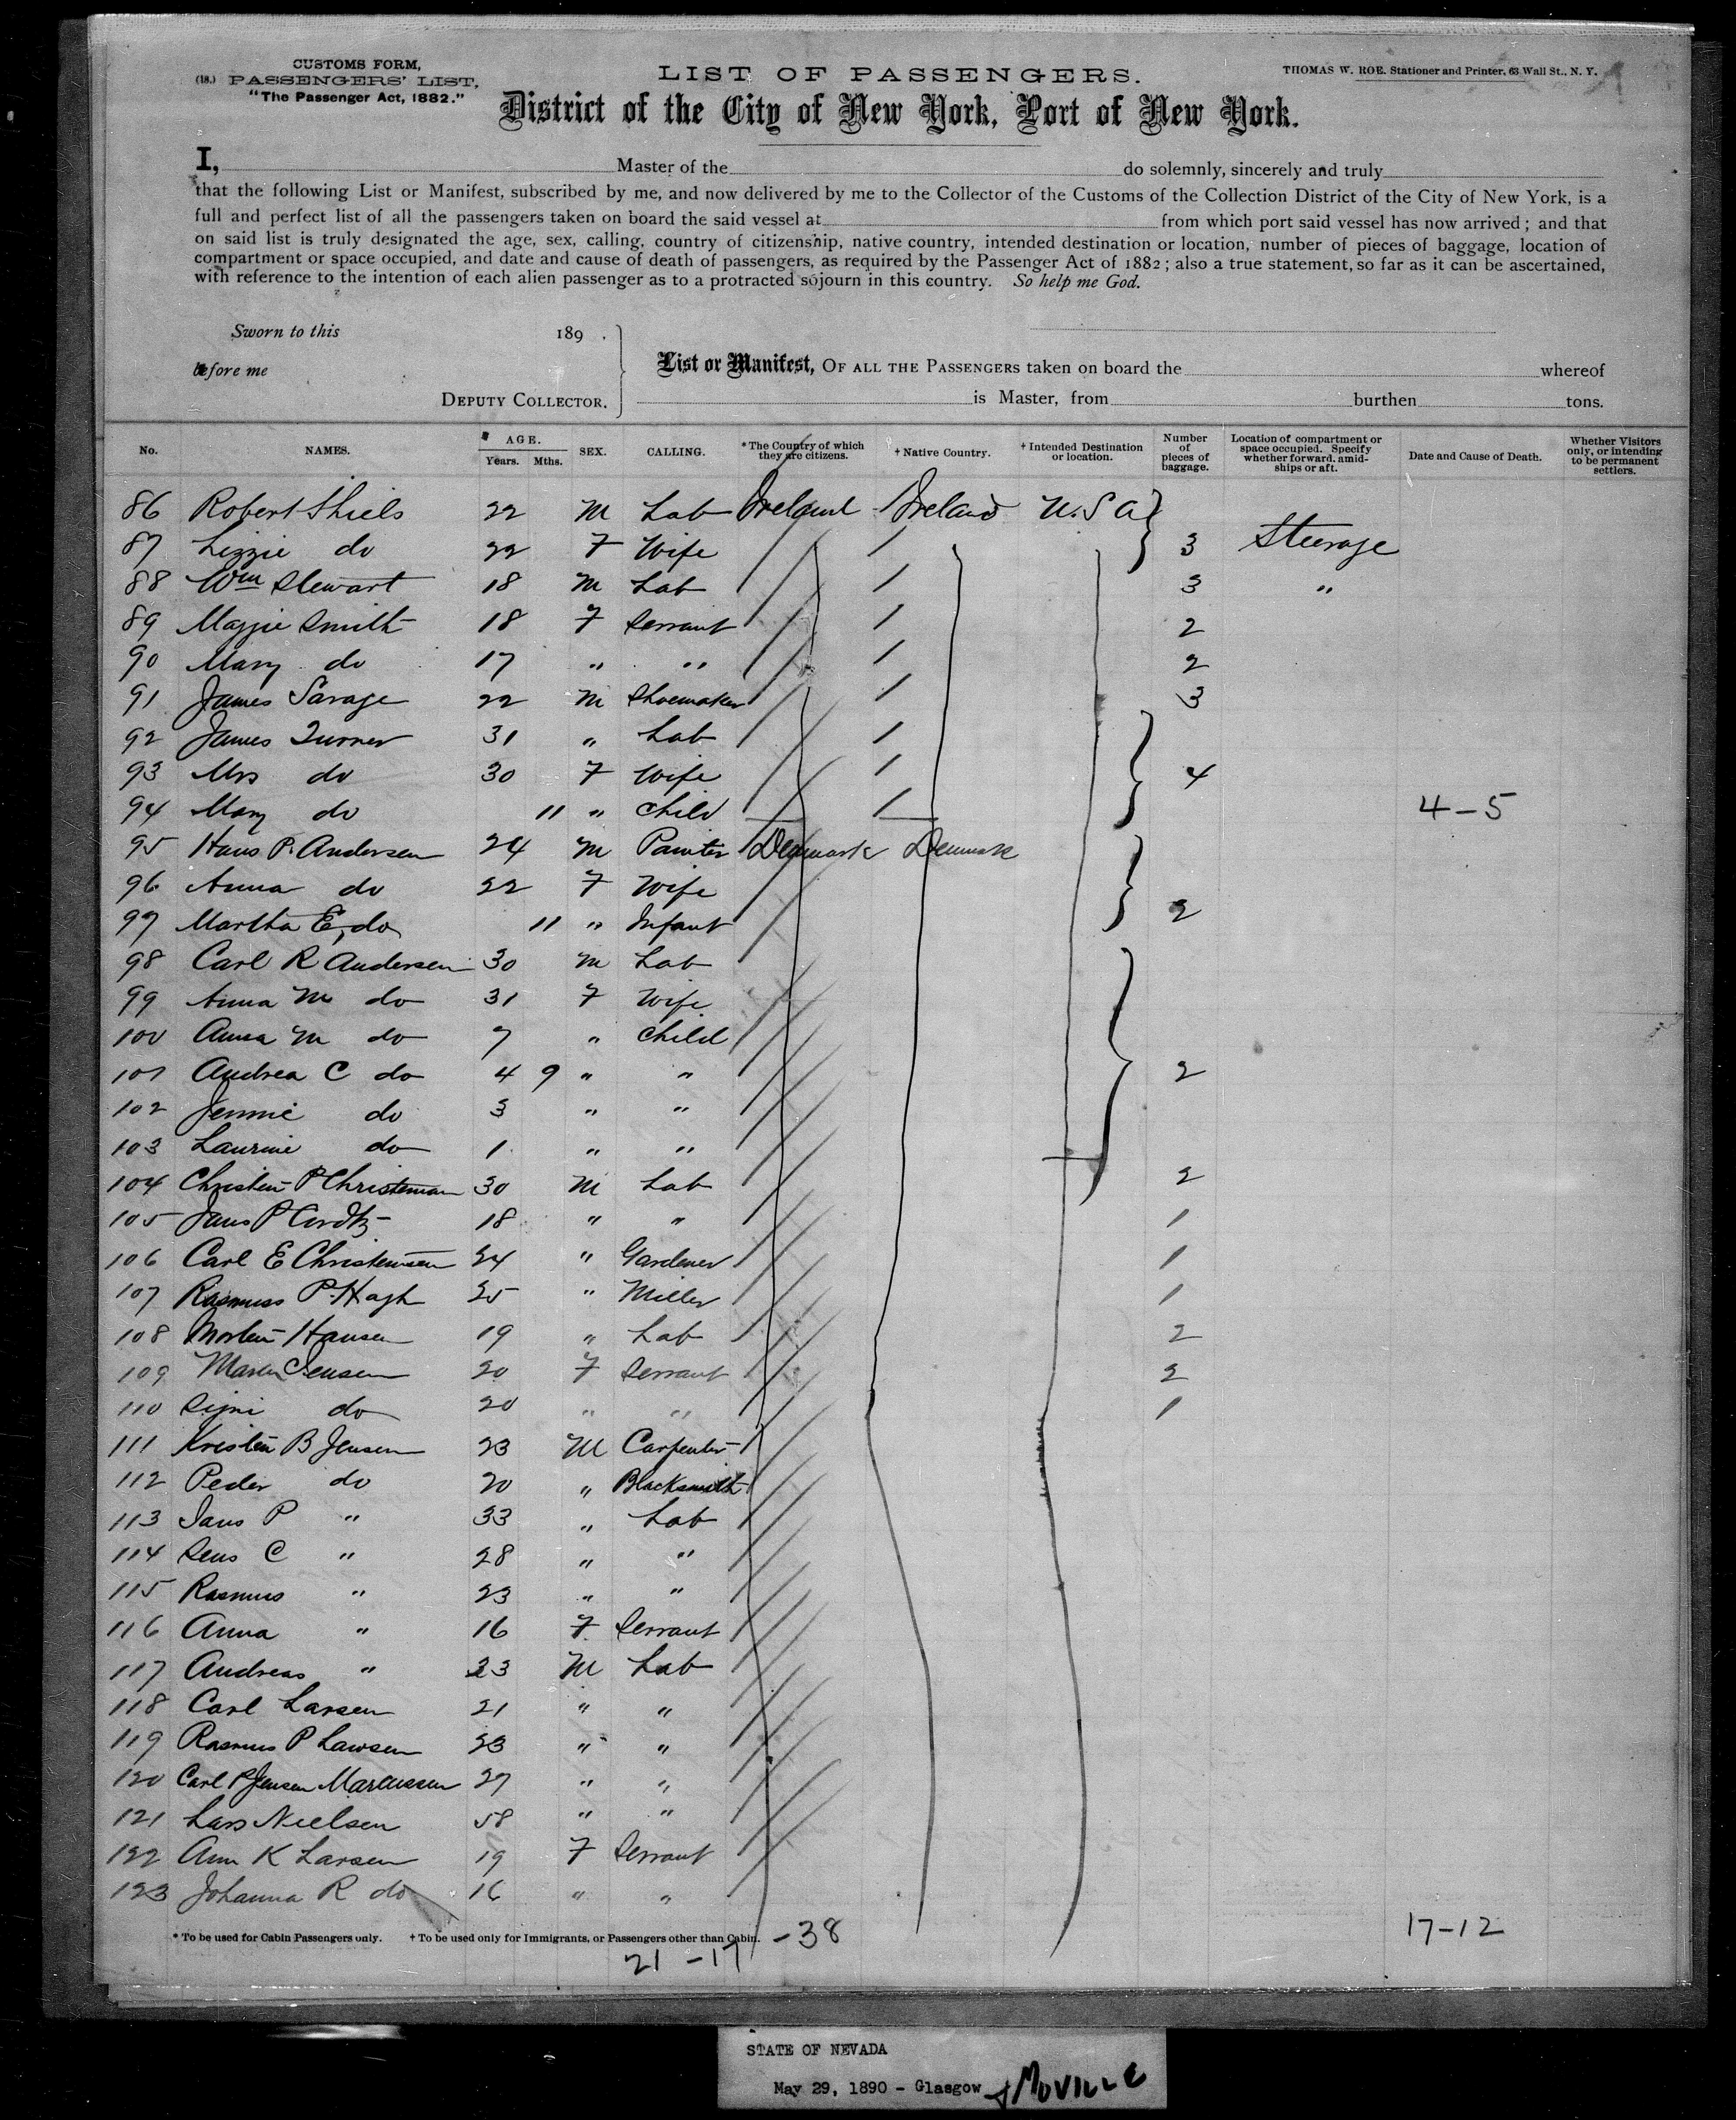 CUSTOMS FORM,
(18.) PASSENGERS' LIST,
"The Passenger Act, 1882."
LIST OF PASSENGERS.
THOMAS W. ROE. Stationer and Printer, 63 Wall St., N. Y.
District of the City of New York, Port of New York.
I, Master of the do solemnly, sincerely and truly
that the following List or Manifest, subscribed by me, and now delivered by me to the Collector of the Customs of the Collection District of the City of New York, is a
full and perfect list of all the passengers taken on board the said vessel at from which port said vessel has now arrived; and that
on said list is truly designated the age, sex, calling, country of citizenship, native country, intended destination or location, number of pieces of baggage, location of
compartment or space occupied, and date and cause of death of passengers, as required by the Passenger Act of 1882; also a true statement, so far as it can be ascertained,
with reference to the intention of each alien passenger as to a protracted sojourn in this country. So help me God.
Sworn to this 189 .
before me
DEPUTY COLLECTOR.
List or Manifest, OF ALL THE PASSENGERS taken on board the whereof
is Master, from burthen tons.
No. NAMES. AGE. Years. Mths. SEX. CALLING. * The Country of which they are citizens. † Native Country. † Intended Destination or location. Number of pieces of baggage. Location of compartment or space occupied. Specify whether forward, amidships or aft. Date and Cause of Death. Whether Visitors only, or intending to be permanent settlers.
86 Robert Shiels 22 M Lab Ireland Ireland U.S A
87 Lizzie do 22 F Wife 3 Steerage
88 Wm Stewart 18 M Lab 3 "
89 Maggie Smith 18 F Servant 2
90 Mary do 17 " " 2
91 James Savage 22 M Shoemaker 3
92 James Turner 31 " Lab
93 Mrs do 30 F Wife 4
94 Mary do 11 " Child 4-5
95 Hans P. Andersen 24 M Painter Denmark Denmark
96 Anna do 22 F Wife
97 Martha E, do 11 " Infant 2
98 Carl R Andersen 30 M Lab
99 Anna M do 31 F Wife
100 Anna M do 7 " Child
101 Andrea C do 4 9 " " 2
102 Jennie do 3 " "
103 Laurine do 1 " "
104 Christen P Christensen 30 M Lab 2
105 Jans P 18 " " 1
106 Carl E Christensen 24 " Gardener 1
107 Rasmuss P. Hagh 25 " Miller 1
108 Morten Hansen 19 " Lab 2
109 Maren Jensen 20 F Servant 2
110 Signi do 20 " " 1
111 Kristen B Jensen 23 M Carpenter
112 Peder do 20 " Blacksmith
113 Jans P " 33 " Lab
114 Sens C " 28 " "
115 Rasmus " 23 " "
116 Anna " 16 F Servant
117 Andreas " 23 M Lab
118 Carl Larsen 21 " "
119 Rasmus P Lawsen 23 " "
120 Carl P Jensen Marcussen 27 " "
121 Lars Nielsen 58 " "
122 Ann K Larsen 19 F Servant
123 Johanna R do 16 " "
* To be used for Cabin Passengers only. † To be used only for Immigrants, or Passengers other than Cabin. -38 17-12
21 -17
STATE OF NEVADA
May 29, 1890 - Glasgow + MOVILLE